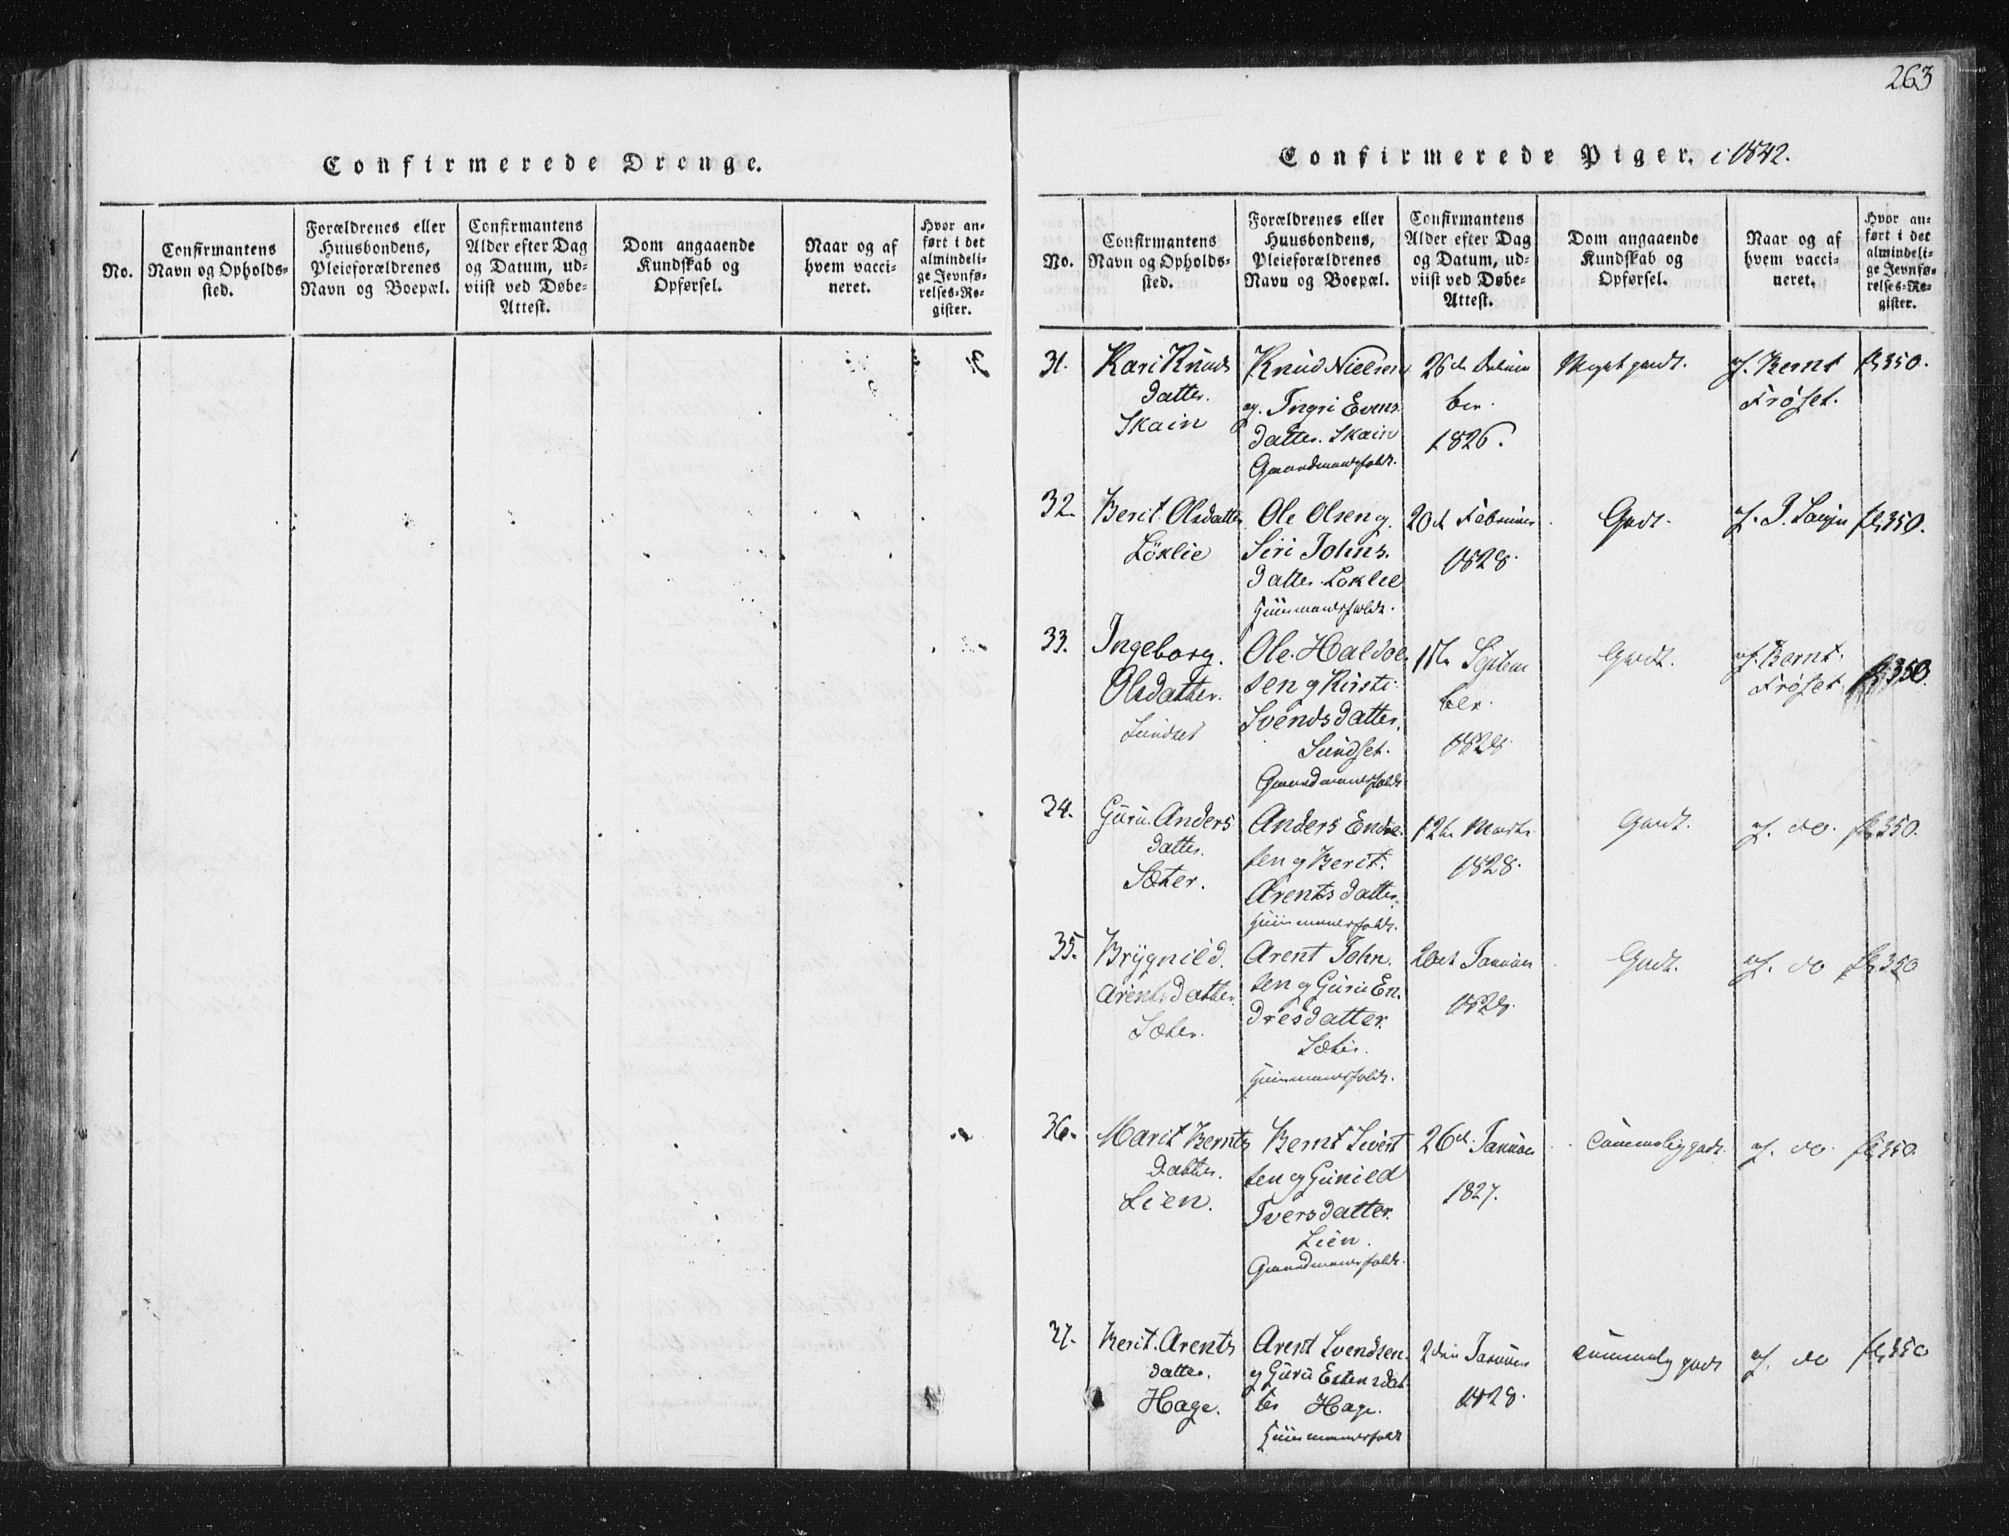 263
Confirmerede Drenge.
No.
Confirmantens
Navn og Opholds-
sted.
Forældrenes eller
Huusbondens,
Pleieforældrenes
Navn og Boepæl.
Confirmantens
Alder efter Dag
og Datum, ud-
viist ved Døbe-
Attest.
Dom angaaende
Kundskab og
Opførsel.
Naar og af
hvem vacci-
neret.
Hvor an-
ført i det
almindeli-
ge Jevnfø-
relses-Re-
gister.
Confirmerede Piger. i 1842.
No.
Confirmantens
Navn og Opholds-
sted.
Forældrenes eller
Huusbondens,
Pleieforældrenes
Navn og Boepæl.
Confirmantens
Alder efter Dag
og Datum, ud-
viist ved Døbe-
Attest.
Dom angaaende
Kundskab og
Opførsel.
Naar og af
hvem vacci-
neret.
Hvor an-
ført i det
almindeli-
ge Jevnfø-
relses-Re-
gister.
31.
Kari Knuds
datter.
Skain
Knud Nielsen
og Ingri Evens
datter. Skain
Gaardmandsfolk.
26de
ber.
1826.
Meget godt.
af. Bernt
Frøset.
350.
32.
Berit Olsdatter
Löklie
Ole Olsen og
Siri Johns.
datter Löklie
Huusmandsfolk.
20d Februar
1828.
Godt.
af. P.
350.
33.
Ingeborg.
Olsdatter.
Sundset
Ole Haldor
sen og Kirsti
Svendsdatter.
Sundset.
Gaardmandsfolk
Septem
ber.
1828.
Godt.
af. Bernt.
Frøset
350.
34.
Guru Anders
datter.
Sæter.
Anders Endre
sen og Berit.
Arentsdatter.
Huusmandsfolk.
12te Marts
1828.
Godt.
af. do.
350.
35.
Brygnild.
Arentsdatter.
Sæter.
Arent John.
sen og Guru En.
dresdatter
Sæter.
Huusmandsfolk.
20de Januar
1828.
Godt.
af. do
350
36.
Marit Bernts
datter.
Lien.
Bernt Sivert
sen og Gunild
Iversdatter.
Lien.
Gaardmandsfolk.
26d. Januar
1827.
Temmelig godt.
af. do.
350.
37.
Berit Arents
datter.
Hage.
Arent Svendsen.
og Guru Estensdat
ter Hage.
Huusmandsfolk
2den Januar
1828.
temmelig godt
af. do
350